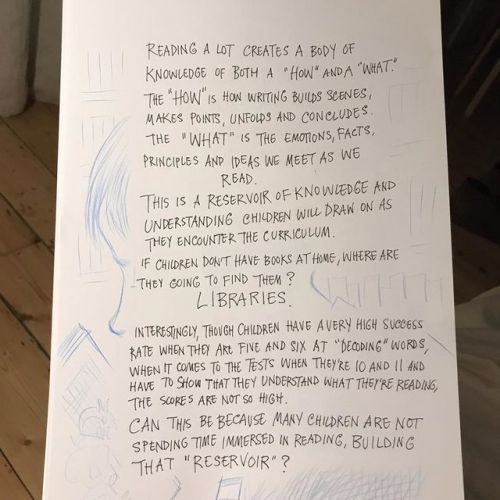 READING A LOT CREATES A BODY OF
KNOWLEDGE OF BOTH A "HOW" AND A "WHAT."
THE "HOW" IS HOW WRITING BUILDS SCENES,
MAKES POINTS, UNFOLDS AND CONCLUDES.
THE "WHAT" IS THE EMOTIONS, FACTS,
PRINCIPLES AND IDEAS WE MEET AS WE
READ.
THIS IS A RESERVOIR OF KNOWLEDGE AND
UNDERSTANDING CHILDREN WILL DRAW ON AS
THEY ENCOUNTER THE CURRICULUM.
IF CHILDREN DON'T HAVE BOOKS AT HOME, WHERE ARE
THEY GOING TO FIND THEM?
LIBRARIES.
INTERESTINGLY, THOUGH CHILDREN HAVE A VERY HIGH SUCCESS
RATE WHEN THEY ARE FIVE AND SIX AT "DECODING" WORDS,
WHEN IT COMES TO THE TESTS WHEN THEY'RE 10 AND 11 AND
HAVE TO SHOW THAT THEY UNDERSTAND WHAT THEY'RE READING,
THE SCORES ARE NOT SO HIGH.
CAN THIS BE BECAUSE MANY CHILDREN ARE NOT
SPENDING TIME IMMERSED IN READING, BUILDING
THAT "RESERVOIR"?